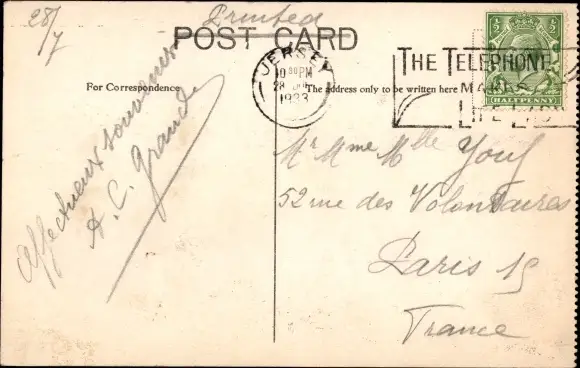 28/7
Printed
POST CARD
½ ½
HALFPENNY
JERSEY
28
1933
THE TELEPHONE
MAKES
LIFE EASY
For Correspondence
The address only to be written here
Affectueux souvenirs
A. C. Grande
Mr Mme Mlle Youf
52 rue des Volontaires
Paris 15
France